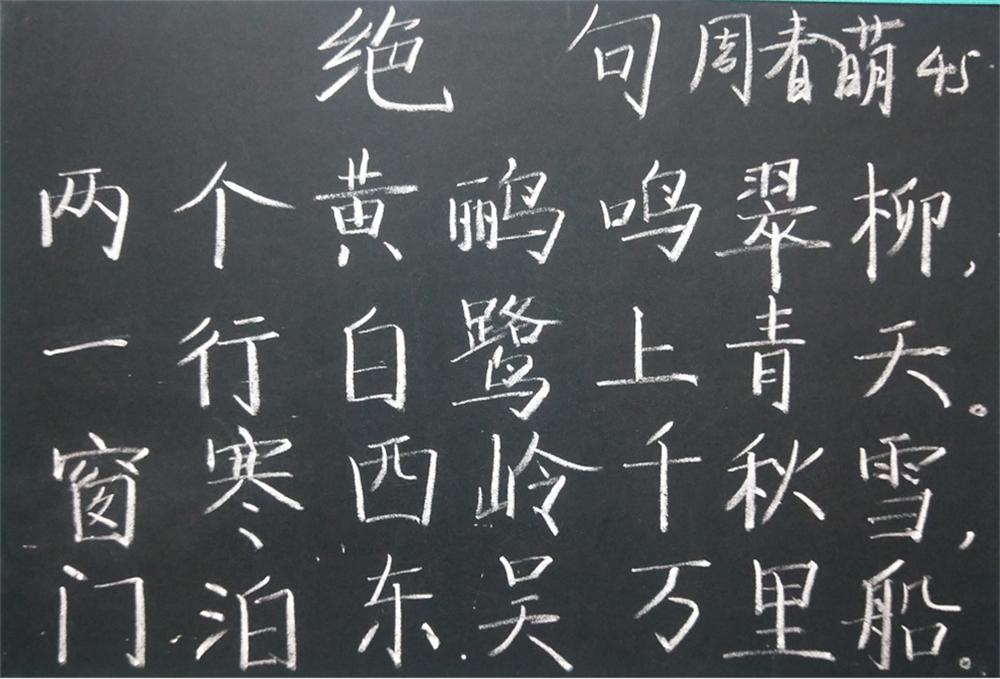 绝句 周春萌 45
两个黄鹂鸣翠柳，
一行白鹭上青天。
窗寒西岭千秋雪，
门泊东吴万里船。